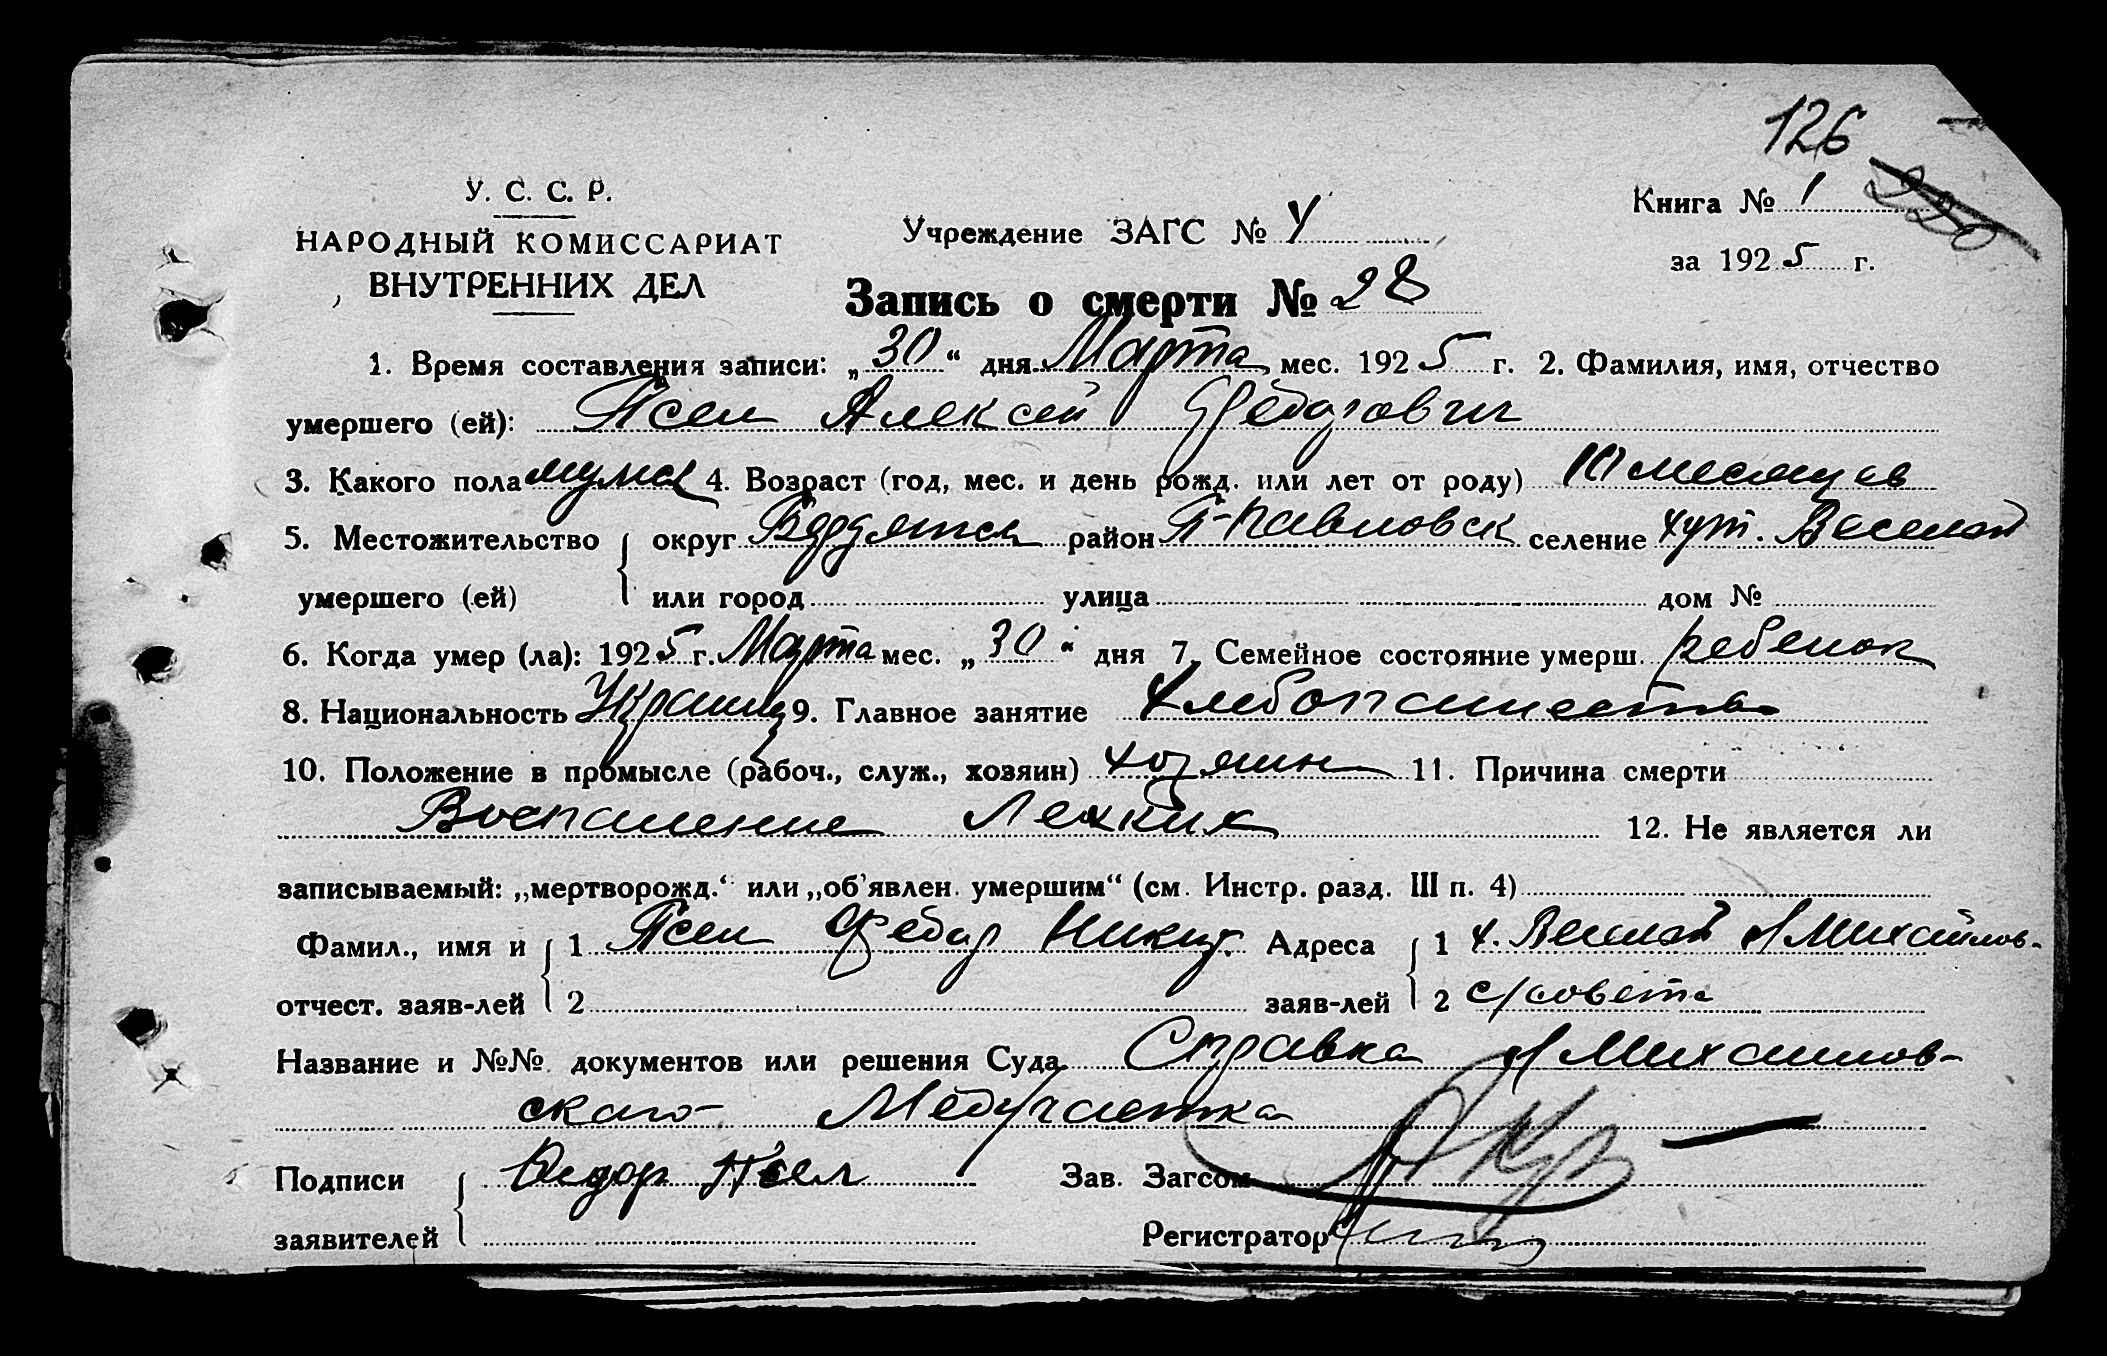 126
У. С. С. Р.
НАРОДНЫЙ КОМИССАРИАТ
ВНУТРЕННИХ ДЕЛ
Учреждение ЗАГС № 4
Книга № 1
за 1925 г.
Запись о смерти № 28
1. Время составления записи: „30“ дня Марта мес. 1925 г. 2. Фамилия, имя, отчество
умершего (ей): Псел Алексей Федорович
3. Какого пола мужск 4. Возраст (год, мес. и день рожд. или лет от роду) месяцев
5. Местожительство округ Бердянск район П-Павловск селение хут. Веселый
умершего (ей) или город улица дом №
6. Когда умер (ла): 1925 г. Марта мес. „30“ дня 7. Семейное состояние умерш. ребенок
8. Национальность Украинец 9. Главное занятие Хлебопашество
10. Положение в промысле (рабоч., служ., хозяин) хозяин 11. Причина смерти
Воспаление Легких 12. Не является ли
записываемый: „мертворожд.“ или „об'явлен. умершим“ (см. Инстр. разд. III п. 4)
Фамил., имя и 1 Псел Федор Никит. Адреса 1 х. Веселый Михайлов-
отчест. заяв-лей 2 заяв-лей 2 с/совета
Название и №№ документов или решения Суда Справка Михайлов-
ского Медучастка
Подписи Федор Псел Зав. Загсом
заявителей Регистратор